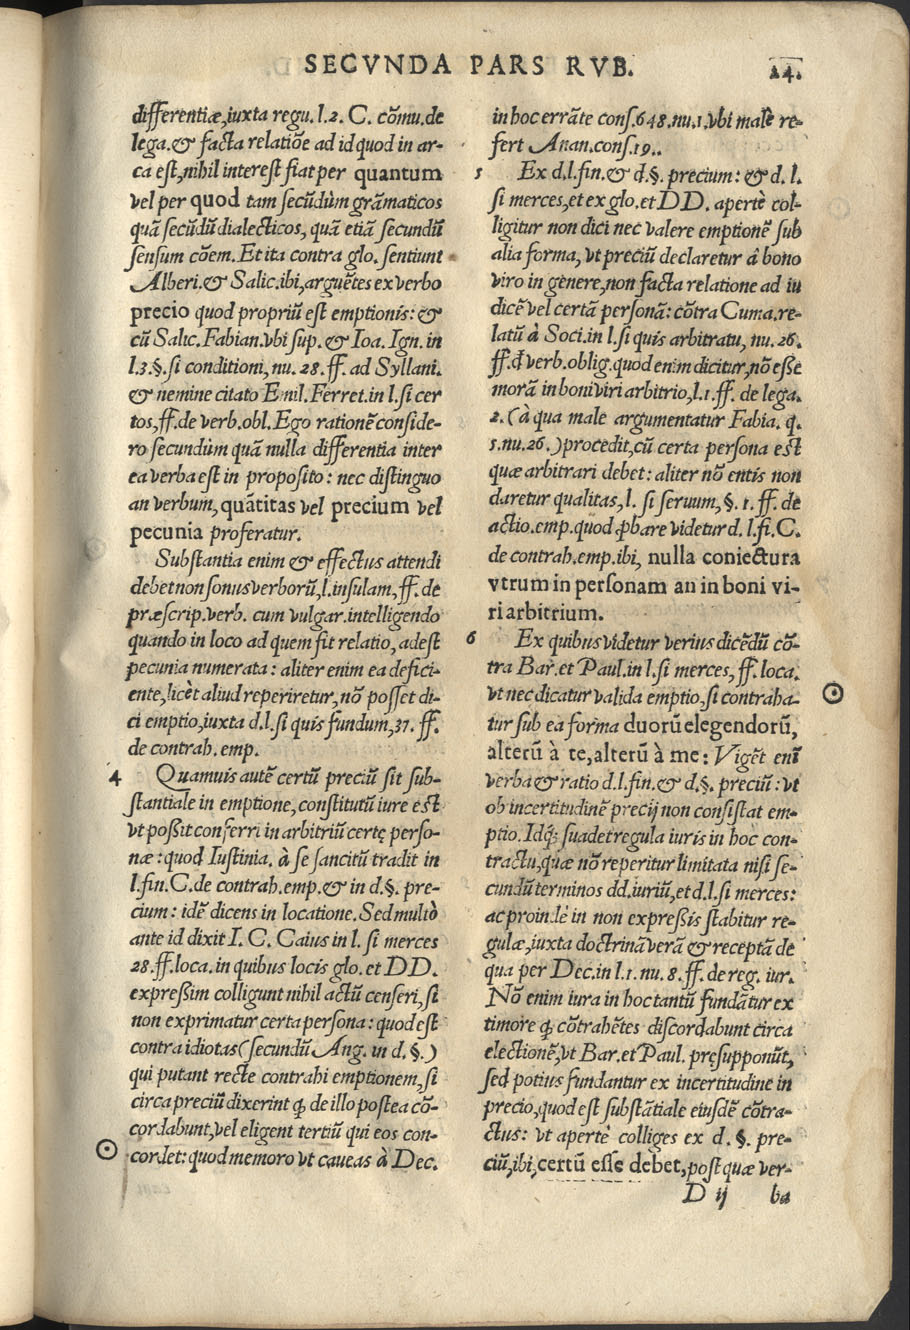 SECVNDA PARS RVB.
14.
differentiæ,iuxta regu.l.2. C. cōmu.de
lega.& facta relatiōe ad id quod in ar-
ca est,nihil interest fiat per quantum
vel per quod tam secūdùm grāmaticos
quā secūdū dialecticos, quā etiā secundū
sensum cōem. Et ita contra glo. sentiunt
Alberi.& Salic.ibi,arguētes ex verbo
precio quod propriū est emptionis: &
cū Salic. Fabian.vbi sup. & Ioa. Ign. in
l.3.§.si conditioni, nu. 28. ff. ad Syllani.
& nemine citato Emil. Ferret.in l.si cer
tos, ff.de verb.obl. Ego rationē conside-
ro secundùm quā nulla differentia inter
ea verba est in proposito: nec distinguo
an verbum, quātitas vel precium vel
pecunia proferatur.
Substantia enim & effectus attendi
debet non sonus verborū,l.insulam, ff. de
præscrip.verb. cum vulgar.intelligendo
quando in loco ad quem fit relatio, adest
pecunia numerata: aliter enim ea defici-
ente,licèt aliud reperiretur, nō posset di-
ci emptio,iuxta d.l.si quis fundum,37. ff.
de contrah. emp.
4 Quamuis autē certū preciū sit sub-
stantiale in emptione, constitutū iure est
vt poßit conferri in arbitriū certę perso-
næ: quod Iustinia. à se sancitū tradit in
l.fin.C.de contrah.emp.& in d.§. pre-
cium: idē dicens in locatione. Sed multò
ante id dixit I. C. Caius in l. si merces
28.ff.loca.in quibus locis glo. et DD.
expreßim colligunt nihil actū censeri, si
non exprimatur certa persona: quod est
contra idiotas (secundū Ang. in d. §.)
qui putant recte contrahi emptionem, si
circa preciū dixerint ꝙ de illo postea cō-
cordabunt,vel eligent tertiū qui eos con-
cordet: quod memoro vt caueas à Dec.
in hoc errāte cons.648.nu.1.vbi malè re-
fert Anan.cons.19..
5 Ex d.l.fin.& d.§. precium: & d. l.
si merces,et ex glo.et DD. apertè col-
ligitur non dici nec valere emptionē sub
alia forma, vt preciū declaretur à bono
viro in genere,non facta relatione ad iu
dicē vel certā personā: cōtra Cuma.re-
latū à Soci.in l.si quis arbitratu, nu. 26.
ff.đ verb.oblig.quod enim dicitur,nō esse
morā in boni viri arbitrio,l.1.ff. de lega.
2. (à qua male argumentatur Fabia. q.
5.nu.26.) procedit, cū certa persona est
quæ arbitrari debet: aliter nō entis non
daretur qualitas,l. si seruum, §. 1. ff. de
actio.emp.quod ꝓbare videtur d. l.fi.C.
de contrah.emp.ibi, nulla coniectura
vtrum in personam an in boni vi-
ri arbitrium.
6 Ex quibus videtur verius dicēdū cō-
tra Bar.et Paul.in l.si merces, ff. loca.
vt nec dicatur valida emptio, si contraha-
tur sub ea forma duorū elegendorū,
alterū à te,alterū à me: Vigēt enī
verba & ratio d.l.fin.& d.§. preciū: vt
ob incertitudinē precij non consistat em-
ptio. Idq; suadet regula iuris in hoc con-
tractu,quæ nō reperitur limitata nisi se-
cundū terminos dd.iuriū,et d.l.si merces:
ac proinde in non expreßis stabitur re-
gulæ,iuxta doctrinā verā & receptā de
qua per Dec.in l.1. nu. 8. ff. de reg. iur.
Nō enim iura in hoc tantū fundātur ex
timore ꝙ cōtrahētes discordabunt circa
electionē,vt Bar.et Paul. pręsupponūt,
sed potius fundantur ex incertitudine in
precio,quod est substātiale eiusdē cōtra-
ctus: vt apertè colliges ex d. §. pre-
ciū,ibi,certū esse debet,post quæ ver-
D ij ba